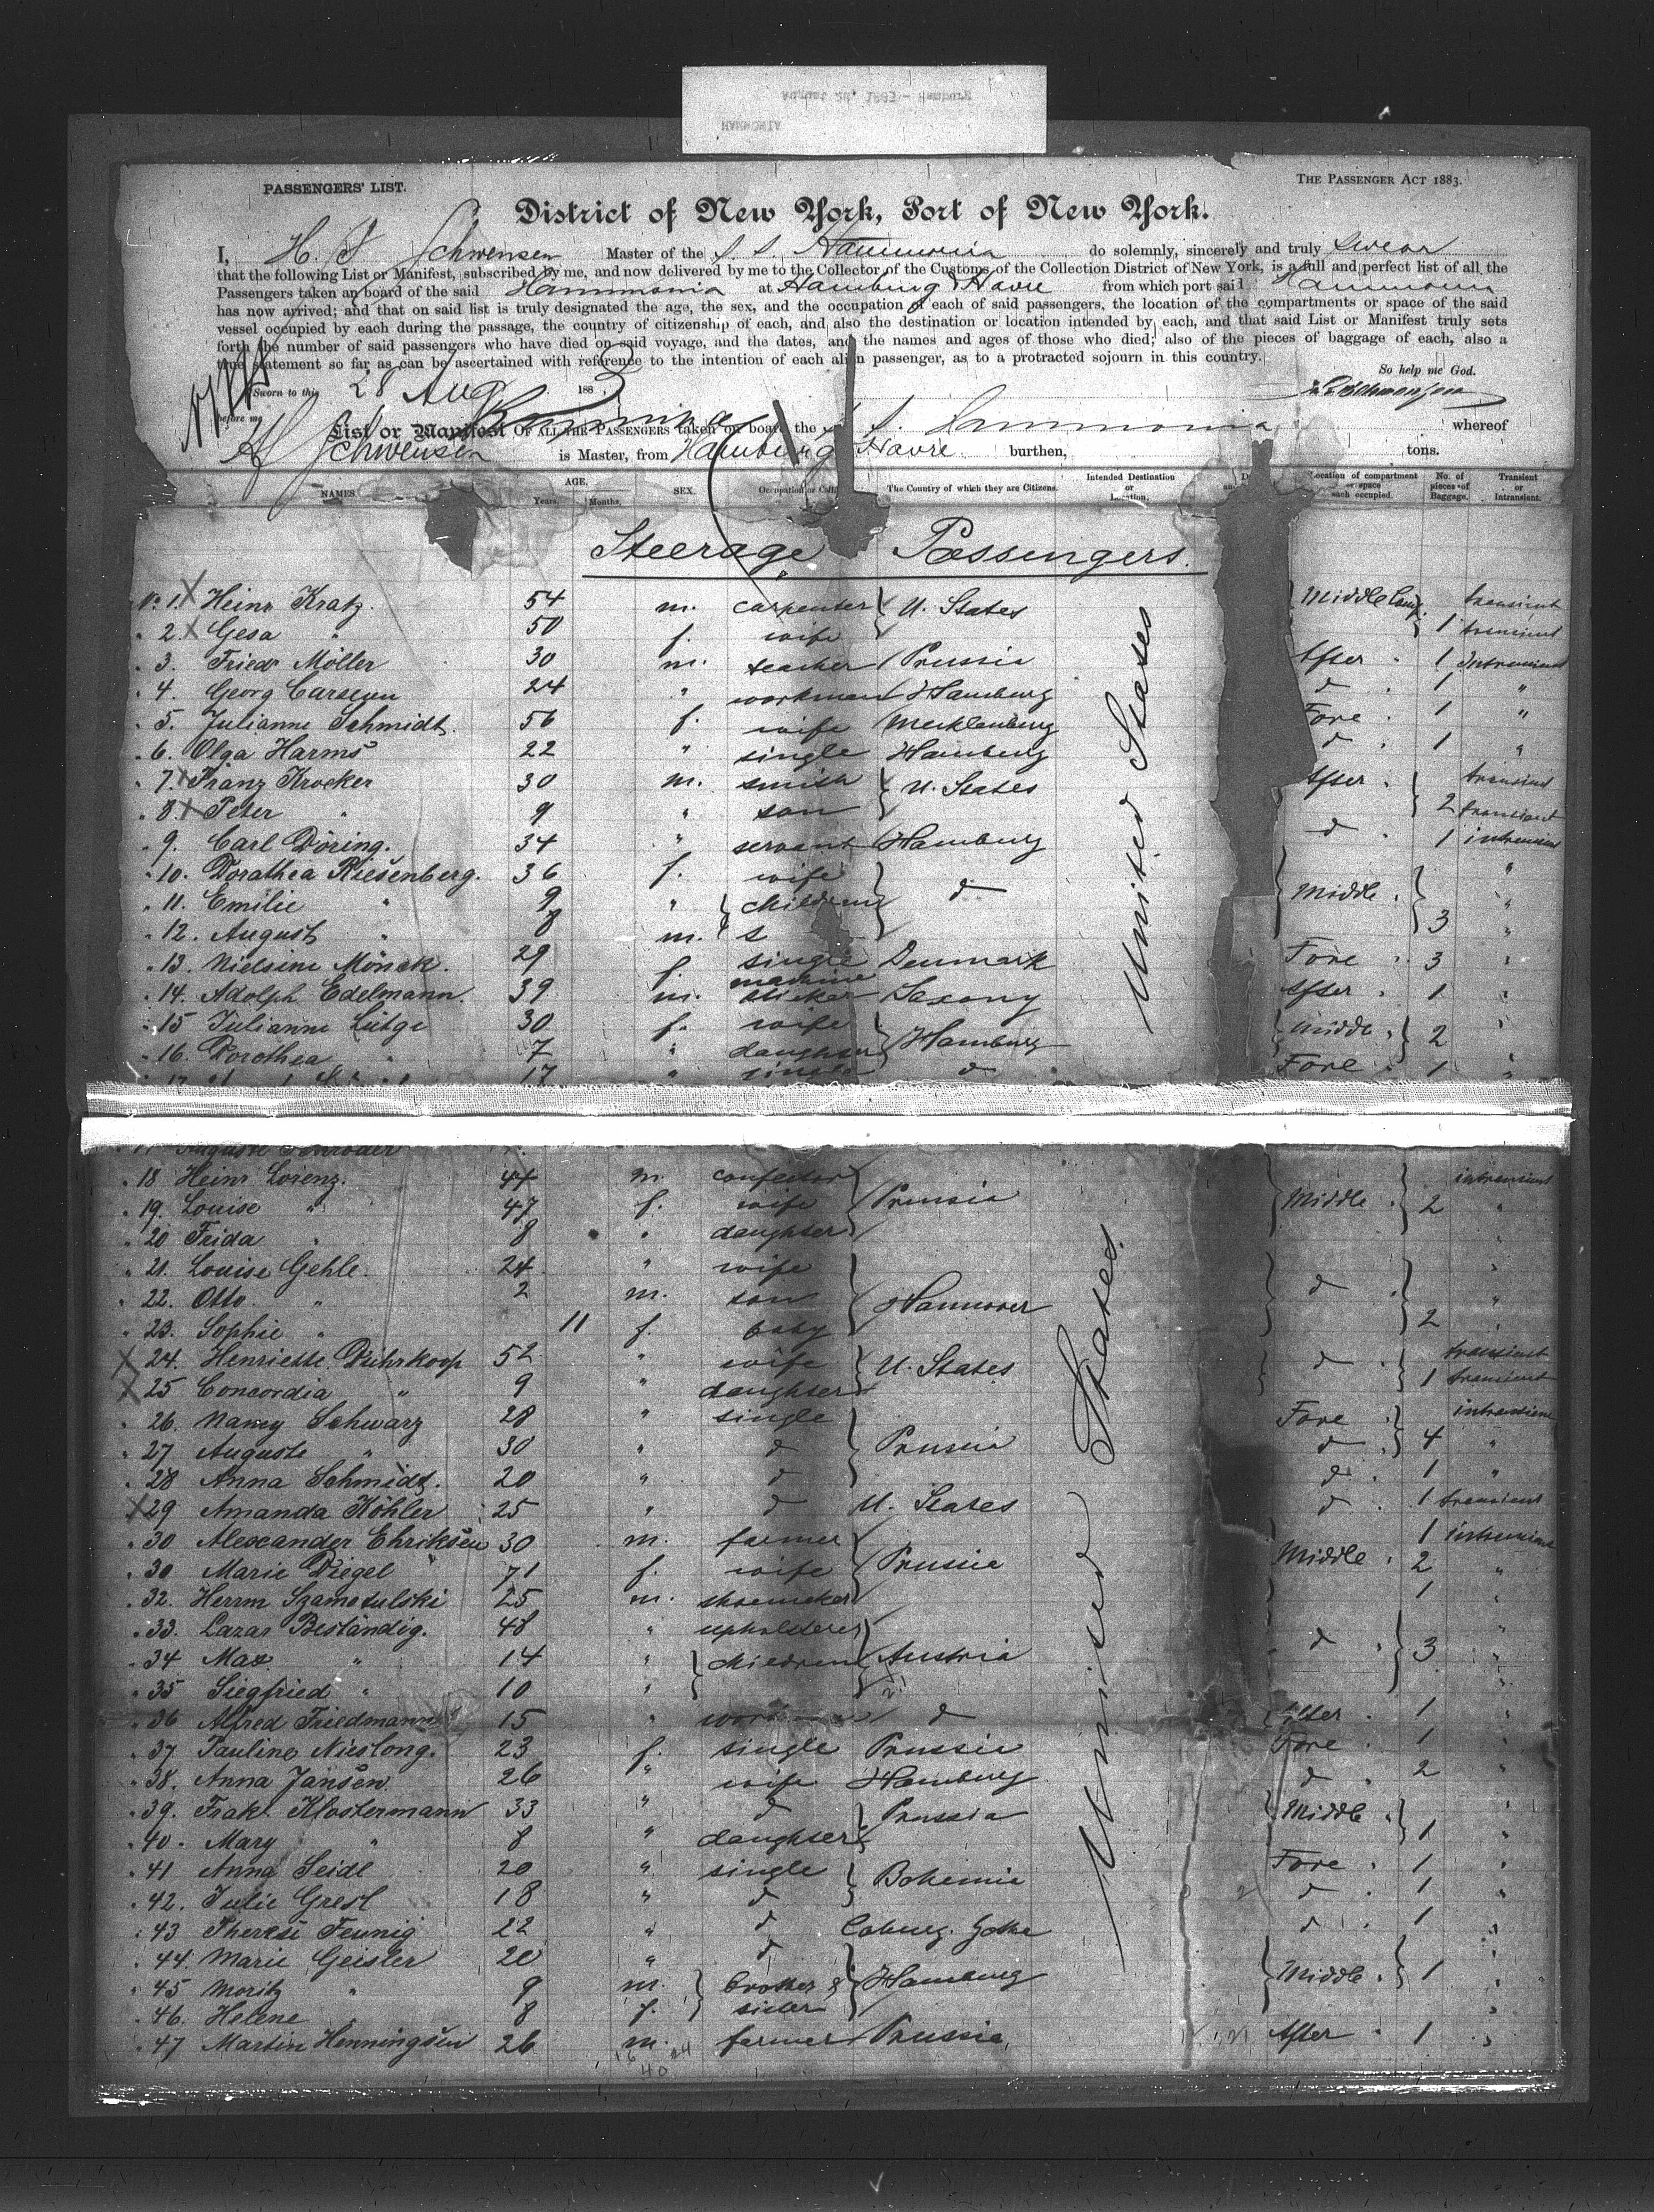 PASSENGERS' LIST.
THE PASSENGER ACT 1883.
District of New York, Port of New York.
I, H. Schwensen Master of the s. s. Hammonia do solemnly, sincerely and truly swear
that the following List or Manifest, subscribed by me, and now delivered by me to the Collector of the Customs of the Collection District of New York, is a full and perfect list of all the
Passengers taken on board of the said Hammonia at Hamburg & Havre from which port said Hammonia
has now arrived; and that on said list is truly designated the age, the sex, and the occupation of each of said passengers, the location of the compartments or space of the said
vessel occupied by each during the passage, the country of citizenship of each, and also the destination or location intended by each, and that said List or Manifest truly sets
forth the number of said passengers who have died on said voyage, and the dates, and the names and ages of those who died; also of the pieces of baggage of each, also a
true statement so far as can be ascertained with reference to the intention of each alien passenger, as to a protracted sojourn in this country.
So help me God.
Sworn to this 28 Aug 1883
before me
List or Manifest OF ALL THE PASSENGERS taken on board the s. s. Hammonia whereof
H Schwensen is Master, from Hamburg Havre burthen, tons.
NAMES. AGE. Years. Months. SEX. Occupation or The Country of which they are Citizens. Intended Destination or Location. Location of compartment or space each occupied. No. of pieces of Baggage. Transient or Intransient.
Steerage Passengers.
No. 1. X Heinr Kratz. 54 m. carpenter } U. States Middle Comp. transient
" 2. X Gesa " 50 f. wife 1 transient
" 3. Friedr Möller 30 m. teacher Prussia After " 1 Intransient
" 4. Georg Carseun 24 " workman Hamburg d " 1 "
" 5. Julianne Schmidt. 56 f. wife Mecklenburg Fore " 1 "
" 6. Olga Harms 22 " single Hamburg d " 1 "
" 7. X Franz Krocker 30 m. smith } U. States After " transient
" 8. X Peter " 9 " son 2 transient
" 9. Carl Döring. 34 " servant Hamburg d " 1 intransient
" 10. Dorathea Riesenberg. 36 f. wife "
" 11. Emilie " 9 " } children } d Middle " "
" 12. August " 8 m. s 3 "
" 13. Nielsine Mönck. 29 f. single Denmark Fore " 3 "
" 14. Adolph Edelmann. 39 m. machine Saxony After " 1 "
" 15 Julianne Lütge 30 f. wife } Hamburg Middle " } 2 "
" 16. Dorothea " 7 " daughter
17 " single d Fore " 1 "
United States
17 Auguste Schröder
" 18 Heinr Lorenz. 44 m. confector intransient
" 19. Louise " 47 f. wife } Prussia Middle " 2 "
" 20 Frida " 8 " daughter "
" 21. Louise Gehle. 24 " wife "
" 22. Otto " 2 m. son } Hannover d " "
" 23. Sophie " 11 f. baby 2 "
X 24. Henriette Dührkoop 52 " wife } U. States d " transient
X 25 Concordia " 9 " daughter 1 transient
" 26. Nancy Schwarz 28 " single Fore " intransient
" 27 Auguste " 30 " d } Prussia d " 4 "
" 28 Anna Schmidt. 20 " d d " 1 "
X 29 Amanda Köhler 25 " d U. States d " 1 transient
" 30 Alexander Ehriksen 30 m. farmer 1 intransient
" 30 Marie Diegel 71 f. wife } Prussia Middle " 2 "
" 32. Herrm Szamotulski 25 m. shoemaker 1 "
" 33. Lazar Beständig. 48 " upholsterer "
" 34 Max " 14 " } children } Austria d " } 3 "
" 35 Siegfried " 10 " "
" 36 Alfred Friedmann 15 " d After " 1
" 37. Pauline Nieslong. 23 f. single Prussia Fore " 1 "
" 38. Anna Jansen. 26 " wife Hamburg d " 2 "
" 39. Frak. Klostermann 33 " d } Prussia Middle " "
" 40. Mary " 8 " daughter 1 "
" 41 Anna Seidl 20 " single } Bohemia Fore " 1 "
" 42. Julie Gresl 18 " d d " 1 "
" 43 Therese Feunig 22 " d Coburg. Gotha d " 1 "
" 44. Marie Geisler 20 " d "
" 45 Moritz " 9 m. } brother & } Hamburg Middle " } 1 "
" 46. Helene " 8 f. sister "
" 47 Martin Henningsen 26 m. farmer Prussia After " 1 "
United States